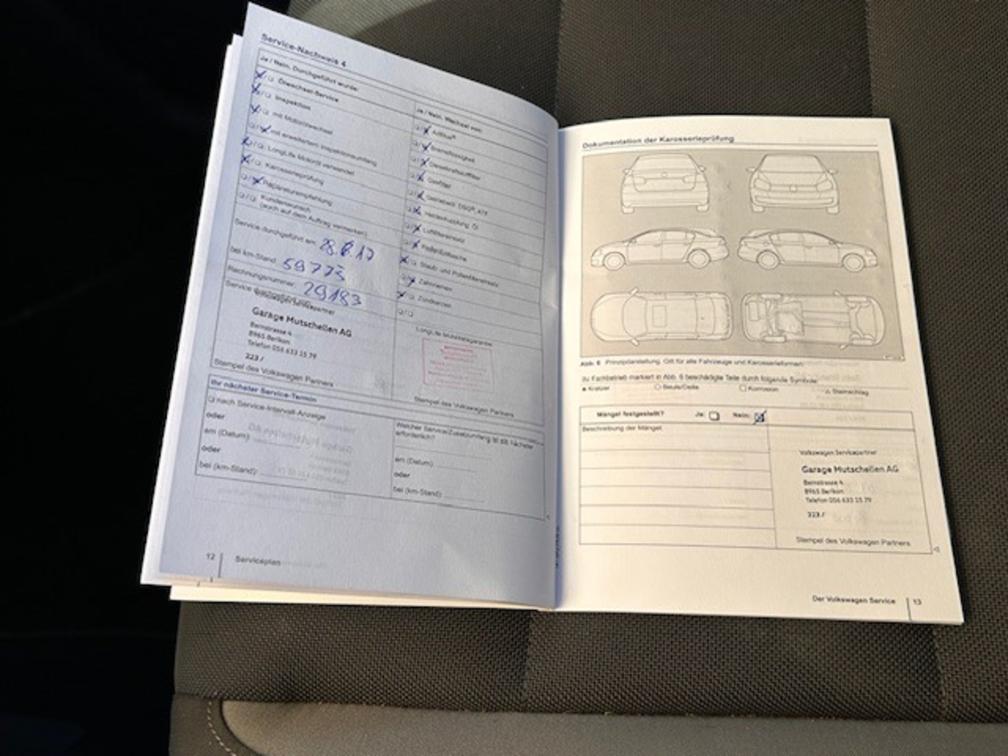 Service-Nachweis 4
Ja / Nein. Durchgeführt wurde:
Ölwechsel-Service
Inspektion
mit Motorölwechsel
mit erweitertem Inspektionsumfang
LongLife Motoröl verwendet
Karosserieprüfung
Reparaturempfehlung
Kundenwunsch
(auch auf dem Auftrag vermerken)
Service durchgeführt am: 28.6.17
bei km-Stand: 59773
Rechnungsnummer: 29183
Service
Volkswagen Servicepartner
Garage Mutschellen AG
Bernstrasse 4
8965 Berikon
Telefon 056 633 15 79
223 /
Stempel des Volkswagen Partners
Ja / Nein. Wechsel von:
AdBlue®
Bremsflüssigkeit
Getriebeöl: DSG®, ATF
Haldexkupplung: Öl
Luftfiltereinsatz
Staub- und Pollenfiltereinsatz
Zahnriemen
Zündkerzen
LongLife Mobilitätsgarantie
Stempel des Volkswagen Partners
Ihr nächster Service-Termin
nach Service-Intervall-Anzeige
oder
am (Datum):
oder
bei (km-Stand):
Welcher Service/Zusatzumfang ist als nächster
erforderlich?
am (Datum):
oder
bei (km-Stand):
12 Serviceplan
Dokumentation der Karosserieprüfung
Abb. 6 Prinzipdarstellung. Gilt für alle Fahrzeuge und Karosserieformen.
Ihr Fachbetrieb markiert in Abb. 6 beschädigte Teile durch folgende Symbole:
Kratzer Beule/Delle Korrosion Steinschlag
Mängel festgestellt? Ja: Nein:
Beschreibung der Mängel:
Volkswagen Servicepartner
Garage Mutschellen AG
Bernstrasse 4
8965 Berikon
Telefon 056 633 15 79
223 /
Stempel des Volkswagen Partners
Der Volkswagen Service 13